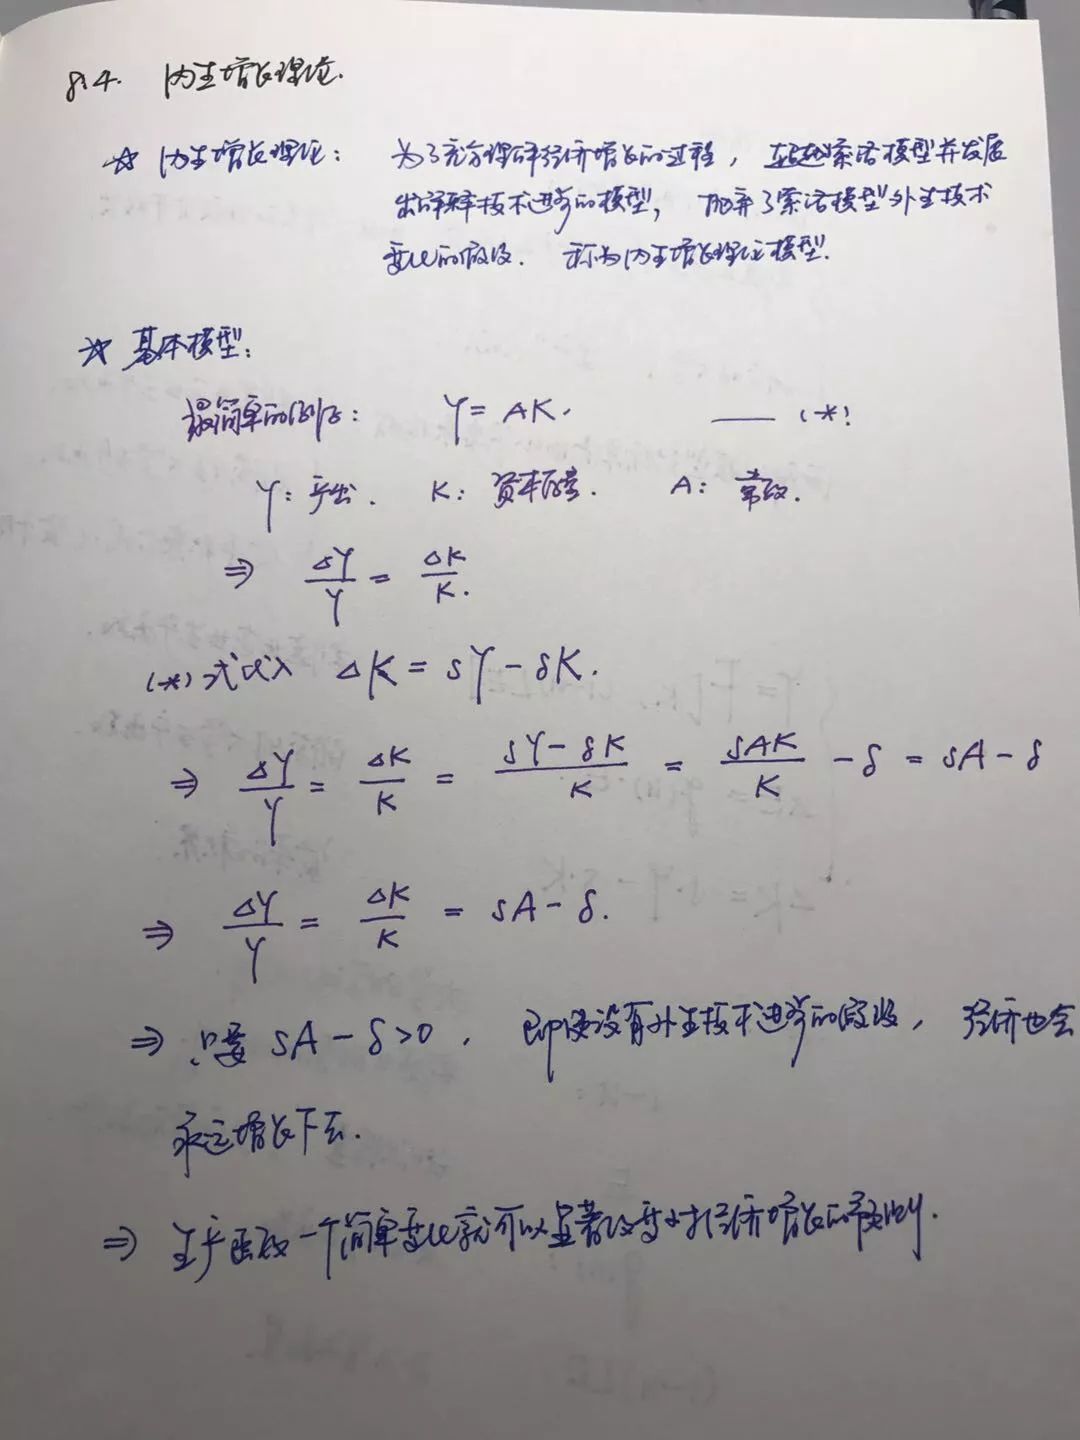 8.4. 内生增长理论.
☆ 内生增长理论: 为了充分理解经济增长的过程, 超越索洛模型并发展
出解释技术进步的模型, 抛弃了索洛模型外生技术
变化的假设. 称为内生增长理论模型.
☆ 基本模型:
最简单的例子: Y = AK. —— (*)
Y: 产出. K: 资本存量. A: 常数.
⇒ ΔY/Y = ΔK/K.
(*)式代入 ΔK = sY - δK.
⇒ ΔY/Y = ΔK/K = (sY - δK)/K = sAK/K - δ = sA - δ
⇒ ΔY/Y = ΔK/K = sA - δ.
⇒ 只要 sA - δ > 0, 即使没有外生技术进步的假设, 经济也会
永远增长下去.
⇒ 生产函数一个简单变化就可以显著改变对经济增长的预测.